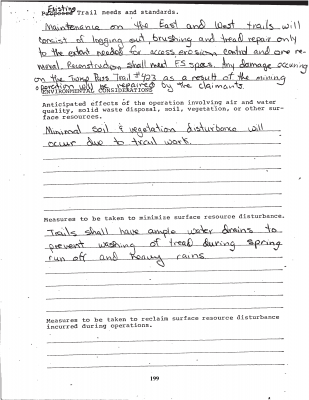 Existing
Proposed Trail needs and standards.
Maintenance on the East and West trails will
consist of logging out, brushing and tread repair only
to the extent needed for access erosion control and ore re-
moval. Reconstruction shall meet FS specs. Any damage occuring
on the Twin Pass Trail #423 as a result of the mining
operation will be repaired by the claimants.
ENVIRONMENTAL CONSIDERATIONS
Anticipated effects of the operation involving air and water
quality, solid waste disposal, soil, vegetation, or other sur-
face resources.
Minimal soil & vegetation disturbance will
occur due to trail work.
Measures to be taken to minimize surface resource disturbance.
Trails shall have ample water drains to
prevent washing of tread during spring
run off and heavy rains
Measures to be taken to reclaim surface resource disturbance
incurred during operations.
199